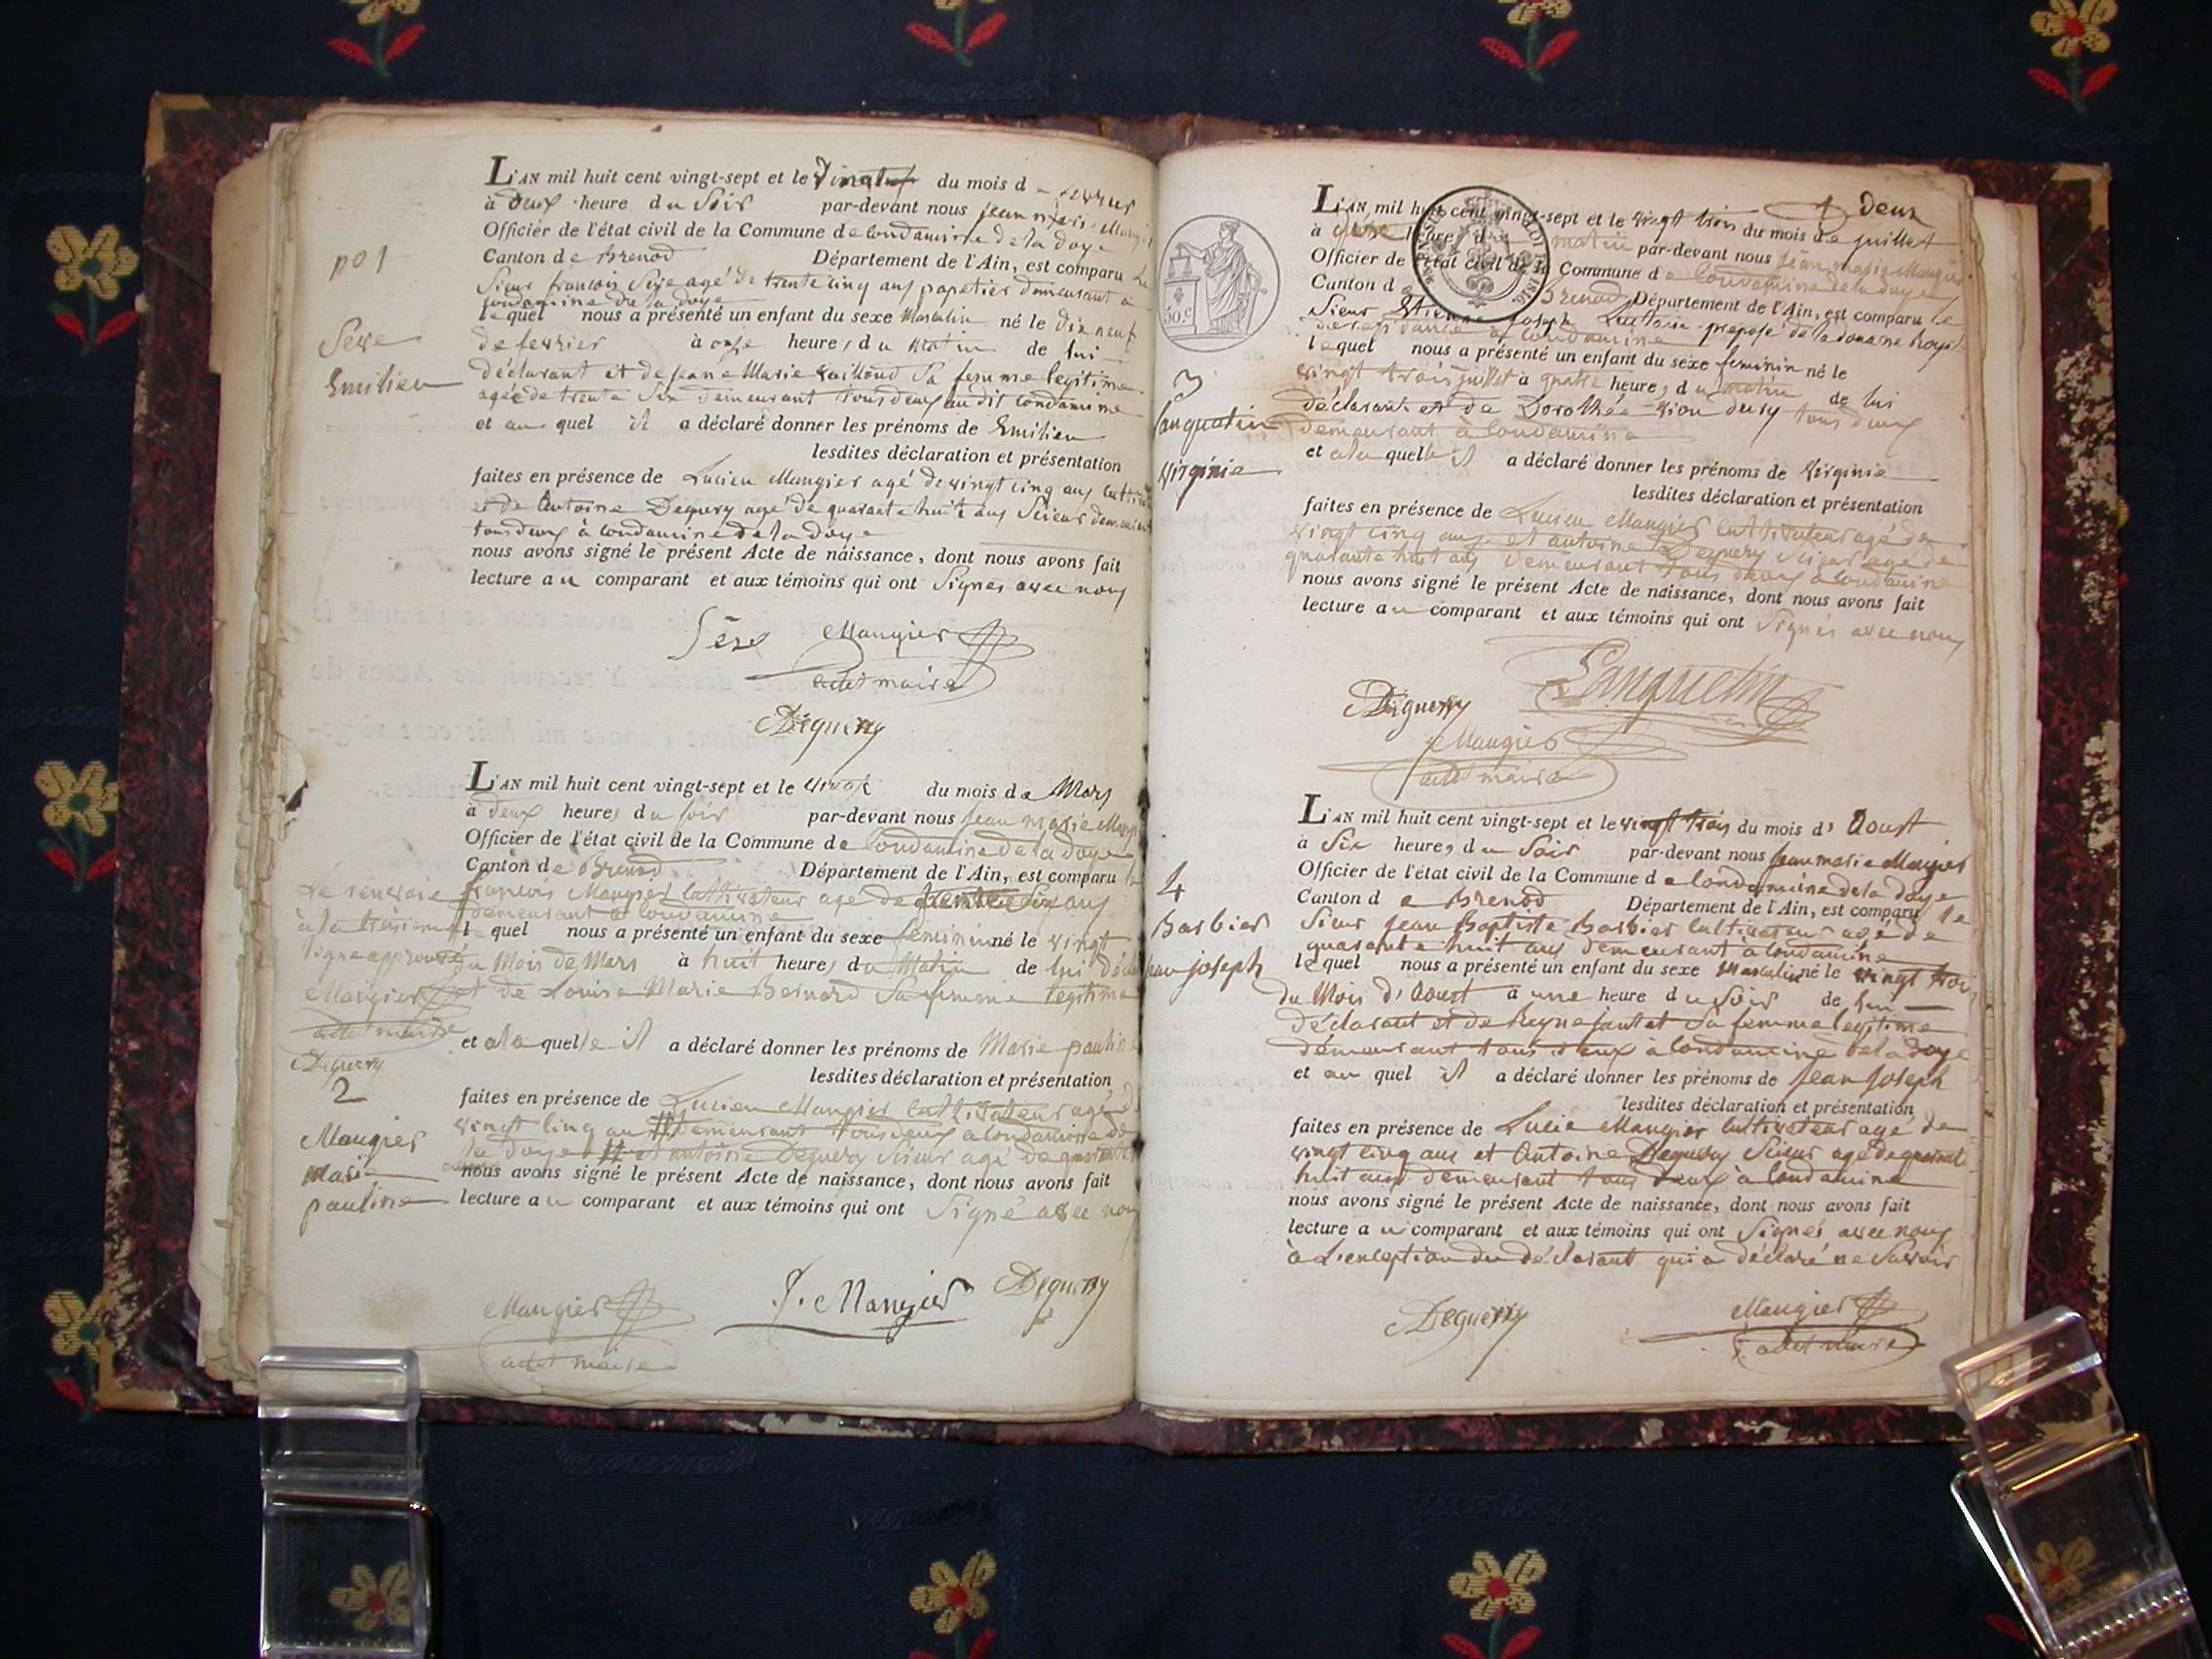 L'AN mil huit cent vingt-sept et le vingt du mois de fevrier
à deux heure du soir par-devant nous jean marie Maugier
Officier de l'état civil de la Commune de Condamine de la doye
Canton de Brenod Département de l'Ain, est comparu Le
Sieur françois Seve agé de trente cinq ans papetier demeurant à
Condamine de la doye
lequel nous a présenté un enfant du sexe Masculin né le dix neuf
de fevrier à onze heure, du matin de lui
déclarant et de jeane Marie vailloud Sa femme legitime
agée de trente Six demeurant tous deux au dit Condamine
et au quel il a déclaré donner les prénoms de Emilien
lesdites déclaration et présentation
faites en présence de Lucien Maugier agé de vingt cinq ans
et de Antoine Deguery agé de quarante huit ans Scieur demeurant
tous deux à Condamine de la doye
nous avons signé le présent Acte de naissance, dont nous avons fait
lecture au comparant et aux témoins qui ont Signés avec nous
no 1
Seve
Emilien
Seve Maugier
adet maire
Deguery
L'AN mil huit cent vingt-sept et le vingt du mois de Mars
à deux heures du soir par-devant nous jean marie Maugier
Officier de l'état civil de la Commune de Condamine de la doye
Canton de Brenod Département de l'Ain, est comparu
françois Maugier Cultivateur agé de trente Six ans
demeurant à Condamine
lequel nous a présenté un enfant du sexe feminin né le vingt
du Mois de Mars à huit heures du Matin de lui
et de Louise Marie Bernard Sa femme legitime
et a la quelle il a déclaré donner les prénoms de Marie pauline
lesdites déclaration et présentation
faites en présence de Lucien Maugier Cultivateur agé de
vingt cinq ans # demeurant tous deux a Condamine de
la doye # et antoine Deguery Scieur agé de quarante
nous avons signé le présent Acte de naissance, dont nous avons fait
lecture au comparant et aux témoins qui ont Signé avec nous
Le renvoie
à la troisieme
ligne approuvé
Maugier
adet maire
Deguery
2
Maugier
Marie
pauline
Maugier J. Maugier Deguery
adet maire
deux
L'AN mil huit cent vingt-sept et le vingt trois du mois de juillet
à heure du matin par-devant nous Jean marie Maugier
Officier de l'état civil de la Commune de Condamine de la doye
Canton de Brenod Département de l'Ain, est comparu le
Sieur Etienne joseph preposé de la douane Royale
de residence à Condamine
laquel nous a présenté un enfant du sexe feminin né le
vingt trois juillet à quatre heures du matin de lui
déclarant et de Dorothée tous deux
demeurant à Condamine
et a la quelle il a déclaré donner les prénoms de Virginie
lesdites déclaration et présentation
faites en présence de Lucien Maugier Cultivateur agé de
vingt cinq ans et antoine Deguery Scieur agé de
quarante huit ans demeurant tous deux a Condamine
nous avons signé le présent Acte de naissance, dont nous avons fait
lecture au comparant et aux témoins qui ont Signés avec nous
3
Sanquetin
Virginie
Deguery Sanquetin
Maugier
adet maire
L'AN mil huit cent vingt-sept et le vingt trois du mois d'Aoust
à Six heures du Soir par-devant nous jean marie Maugier
Officier de l'état civil de la Commune de Condamine de la doye
Canton de Brenod Département de l'Ain, est comparu le
Sieur jean Baptiste Barbier Cultivateur agé de
quarante huit ans demeurant à Condamine
lequel nous a présenté un enfant du sexe Masculin né le vingt trois
du Mois d'Aoust à une heure du Soir de lui
déclarant et de Sa femme legitime
demeurant tous deux à Condamine de la doye
et au quel il a déclaré donner les prénoms de Jean Joseph
lesdites déclaration et présentation
faites en présence de Lucie Maugier Cultivateur agé de
vingt cinq ans et Antoine Deguery Scieur agé de quarante
huit ans demeurant tous deux à Condamine
nous avons signé le présent Acte de naissance, dont nous avons fait
lecture au comparant et aux témoins qui ont Signés avec nous
à L'exception du déclarant qui a déclaré ne Savoir
4
Barbier
jean joseph
Deguery Maugier
adet maire